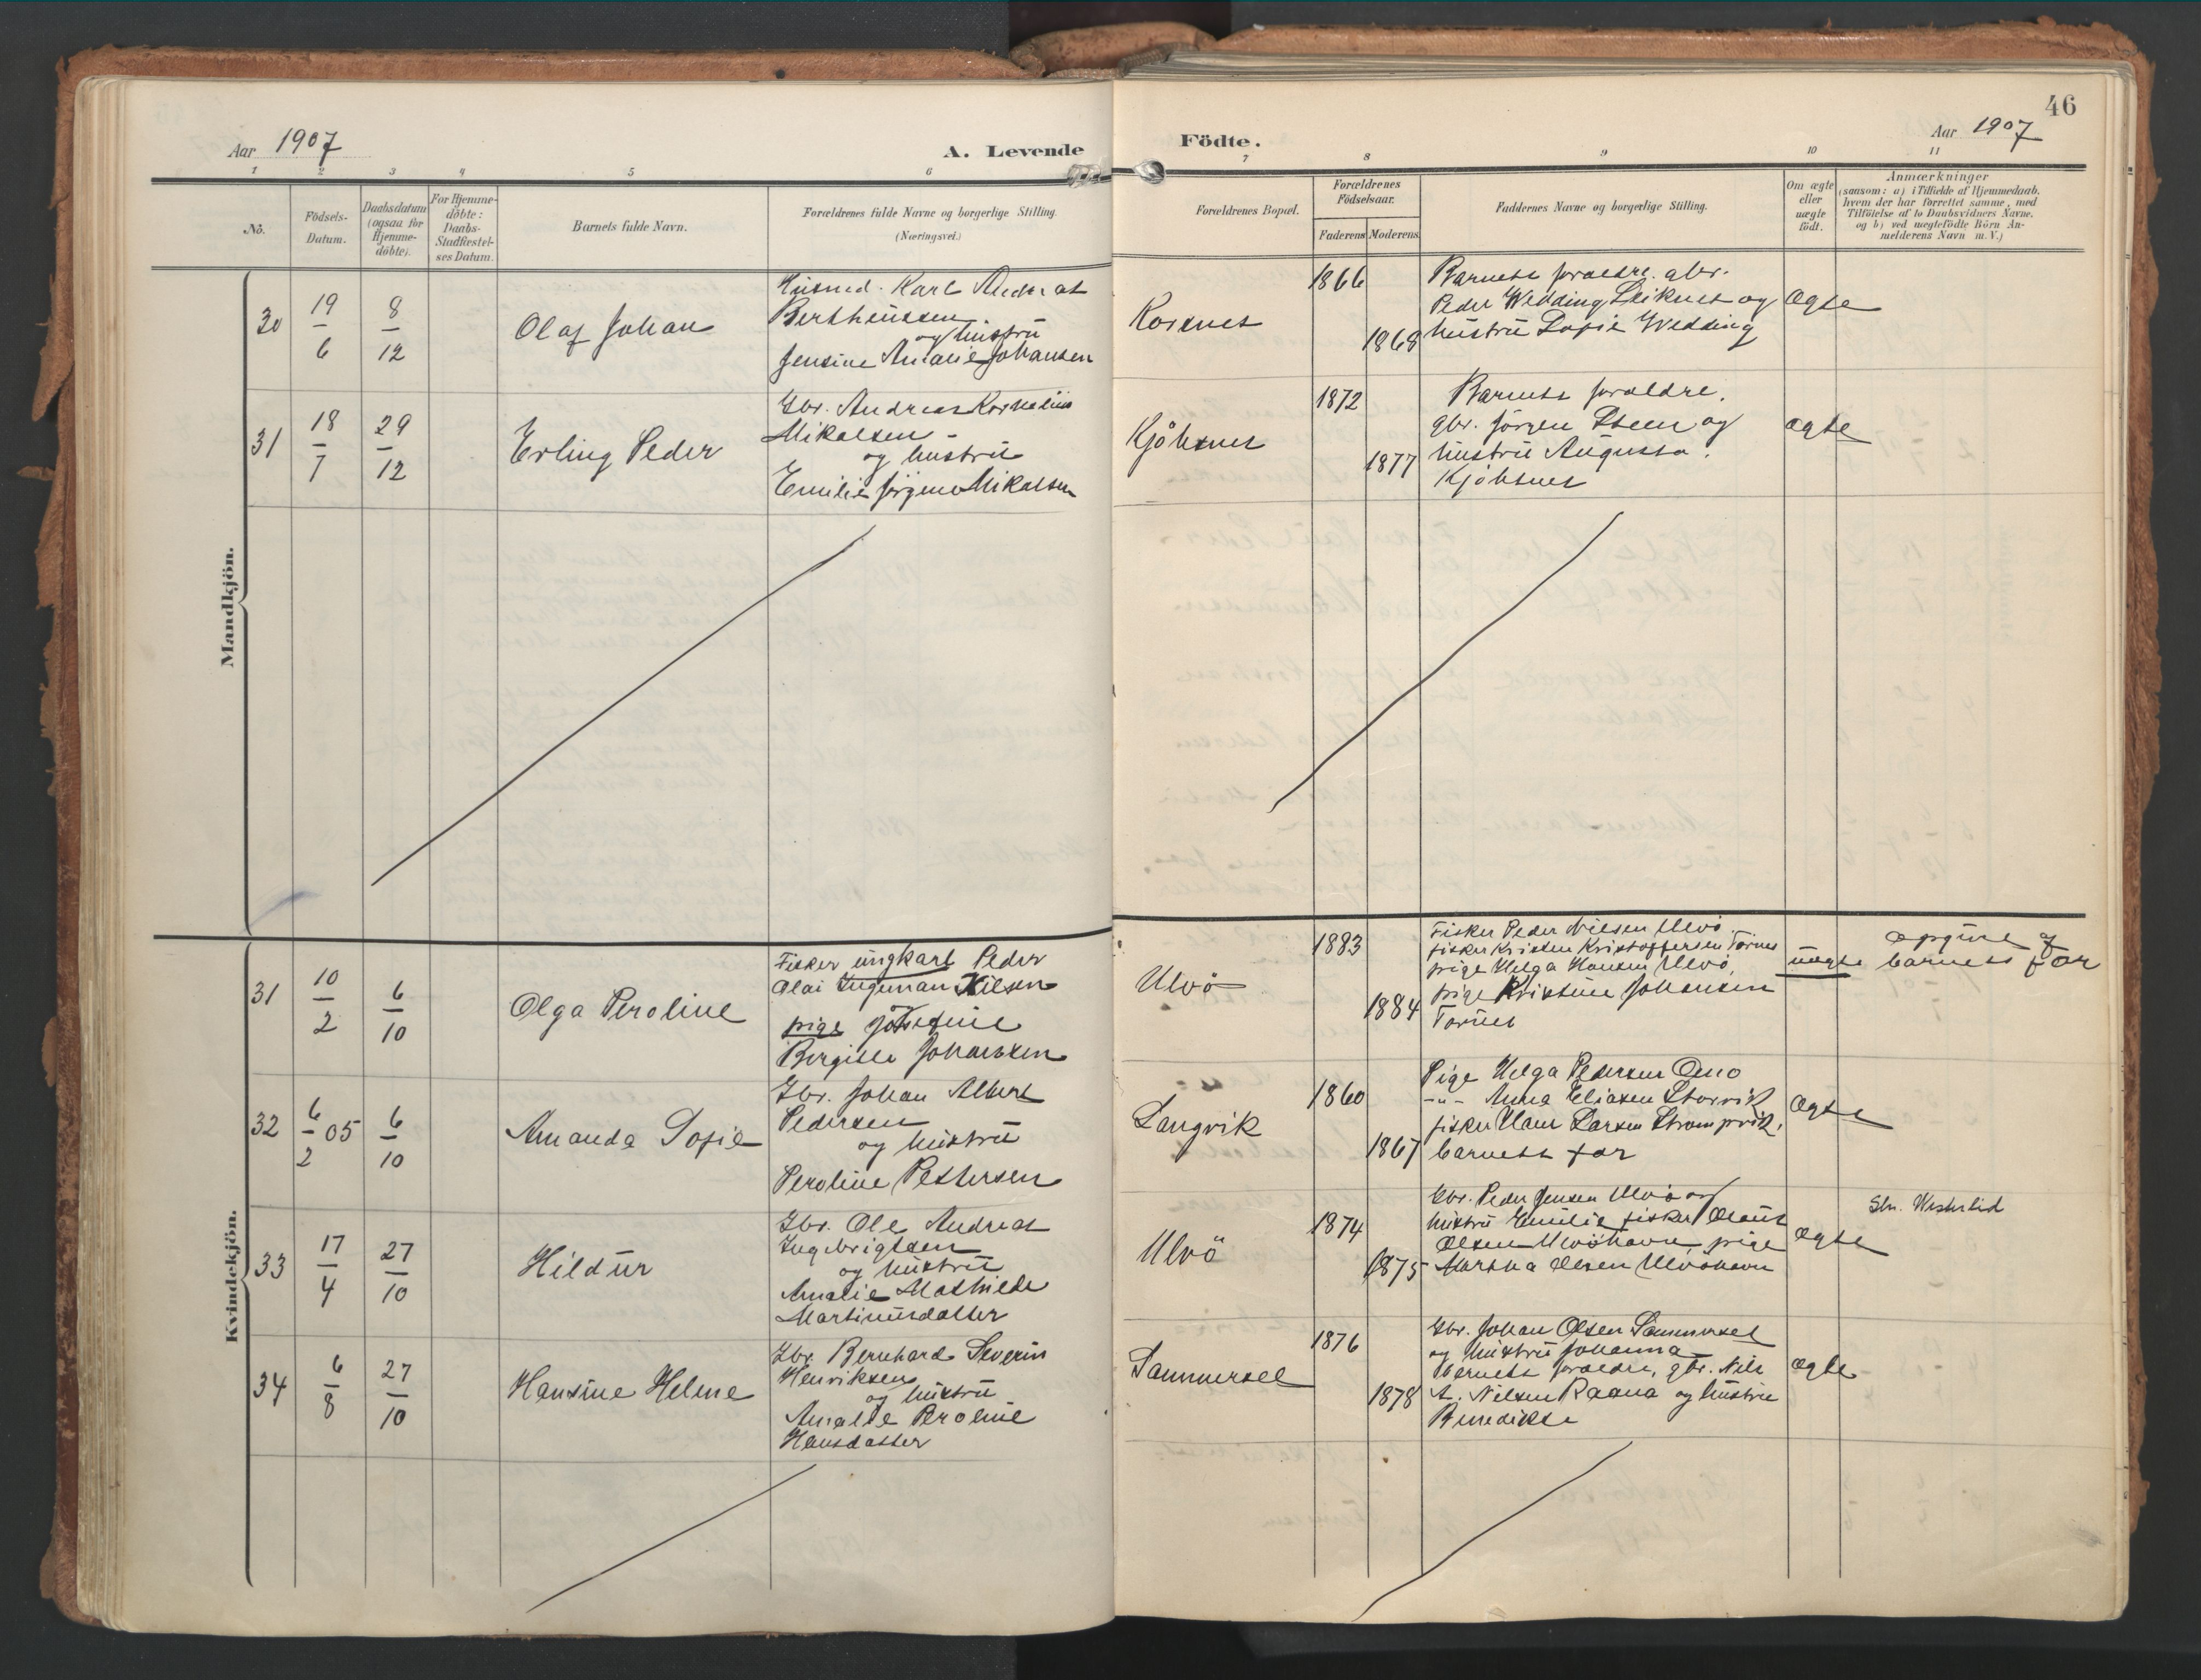 46
Aar 1907
A. Levende
Födte.
Aar 1907
1 2 3 4 5 6 7 8 9 10 11
No.
Födsels-
Datum.
Daabsdatum
(ogsaa for
Hjemme-
döbte).
For Hjemme-
döbte:
Daabs-
Stadfæstel-
ses Datum.
Barnets fulde Navn.
Forældrenes fulde Navne og borgerlige Stilling.
(Næringsvei.)
Forældrenes Bopæl.
Forældrenes
Födselsaar.
Faderens Moderens
Faddernes Navne og borgerlige Stilling.
Om ægte
eller
uægte
födt.
Anmærkninger
(saasom: a) i Tilfælde af Hjemmedaab,
hvem der har forrettet samme, med
Tilföielse af to Daabsvidners Navne.
og b) ved uægtefödte Börn An-
melderens Navn m.V.)
Mandkjön.
30
19/6
8/12
Olaf Johan
Husmd. Karl Andreas
Bertheussen
og hustrü
Jensine Amalie Johansen
Korsnes
1866
1868
Barnets foraeldre. gbr.
Peder Wedding Leiknes og
hustrü Sofie Wedding
Ægte
31
18/7
29/12
Erling Peder
Gbr. Andreas Kornelius
Mikalsen
og hustrü
Emilie Jörgine Mikalsen
Kjöbsnes
1872
1877
Barnets foraeldre.
gbr. Jörgen Steen og
hustrü Augusta.
Kjöbsnes
ægte
Kvindekjön.
31
10/2
6/10
Olga Peroline
Fisker üngkarl Peder
Olai Ingeman Nilsen
og
pige Josefine
Bergitte Johanssen
Ulvö
1883
1884
Fisker Peder Nilsen Ulvö.
fisker Kristen Kristoffersen Tornes
pige Helga Hansen Ulvö,
pige Kristine Johansen
Tornes
üægte
opgive af
barnets far
32
6/2 05
6/10
Amanda Sofie
Gbr. Johan Albert
Pedersen
og hustrü
Peroline Pettersen
Langvik
1860
1867
Pige Helga Pedersen
-"- Anna Eliasen Storvik
fisker Hans Larsen
barnets far
Ægte
33
17/4
27/10
Hildür
Gbr. Ole Andreas
Ingebrigtsen
og hustrü
Amalie Mathilde
Martinüsdatter
Ulvö
1874
1875
Gbr. Peder Jensen Ulvö og
hustrü Emilie fisker Olaüs
Olsen Ulvöhavn, pige
Martha Olsen Ulvöhavn
Ægte
Stn. Westerlid
34
6/8
27/10
Hansine Helene
Gbr. Bernhard Severin
Henriksen
og hustrü
Amalie Peroline
Hansdatter
Sammersel
1876
1878
Gbr. Johan Olsen Sammersel
og hustrü Johanna
barnets foraeldre, gbr. Nils
A. Nilsen Raana og hustrü
Benedikte
ægte